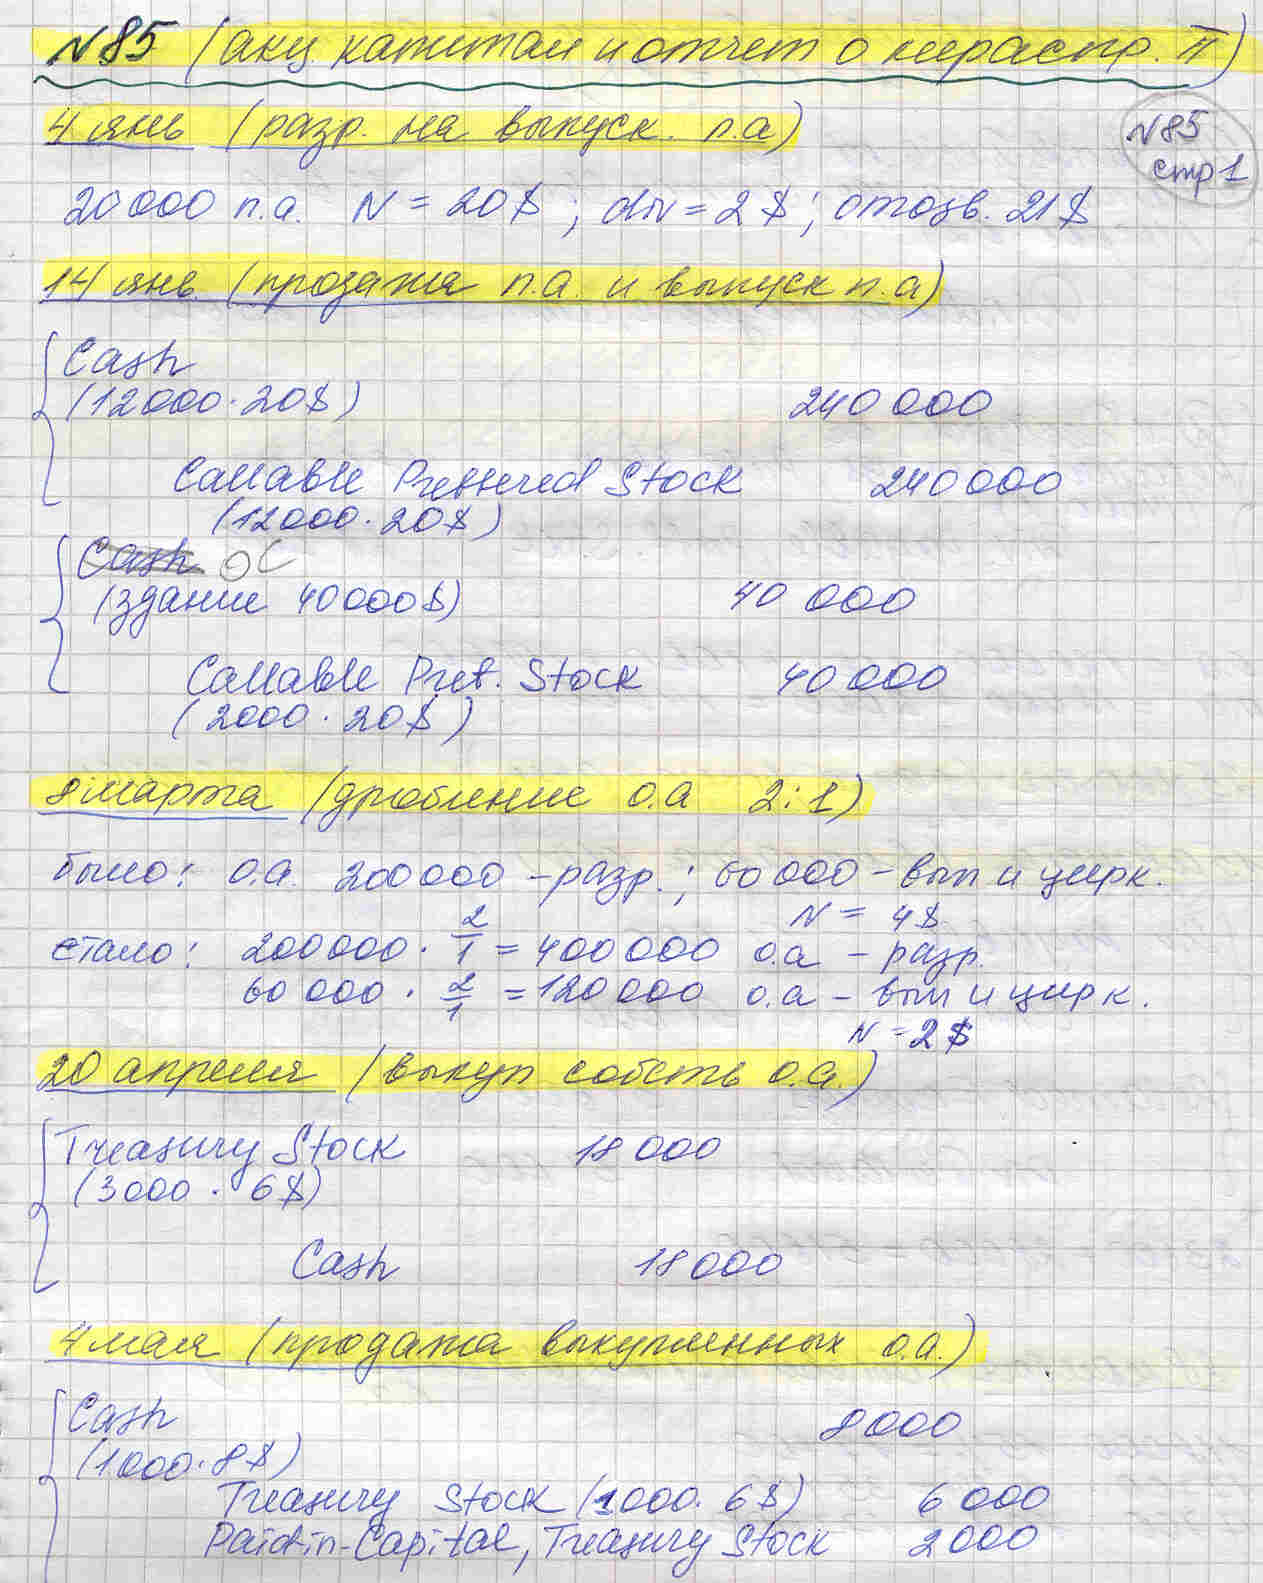 №85 (акц. капитал и отчет о нераспр. П)
4 янв (разр. на выпуск. п.а)
№85
стр 1
20000 п.а. N = 20$ ; div = 2$ ; отозв. 21$
14 янв. (продажа п.а. и выпуск п.а)
Cash
(12000 · 20$) 240 000
Callable Preferred Stock 240 000
(12000 · 20$)
Cash ОС
(здание 40000$) 40 000
Callable Pref. Stock 40 000
(2000 · 20$)
8 марта (дробление о.а 2:1)
было: о.а. 200 000 – разр. ; 60 000 – вып и цирк.
N = 4$
стало: 200000 · 2/1 = 400 000 о.а – разр.
60 000 · 2/1 = 120 000 о.а – вып и цирк.
N = 2$
20 апреля (выкуп собств о.а.)
Treasury Stock 18 000
(3000 · 6$)
Cash 18 000
4 мая (продажа выкупленных о.а.)
Cash 8000
(1000 · 8$)
Treasury Stock (1000 · 6$) 6 000
Paid-in-Capital, Treasury Stock 2000